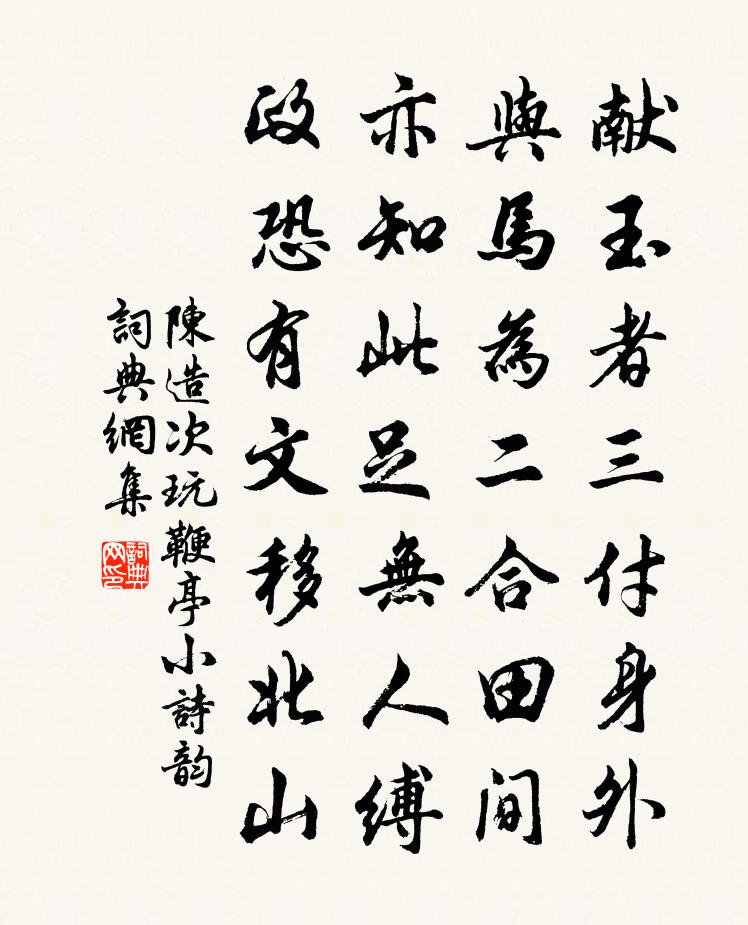 献玉者三付身外
與馬為二合田間
亦知此足無人縛
政恐有文移北山
陳造次玩鞭亭小詩韵
詞典網集
詞典网印